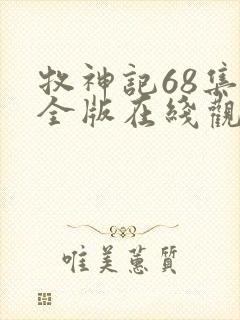 牧神記68集
全版在綫觀
唯美蕙質